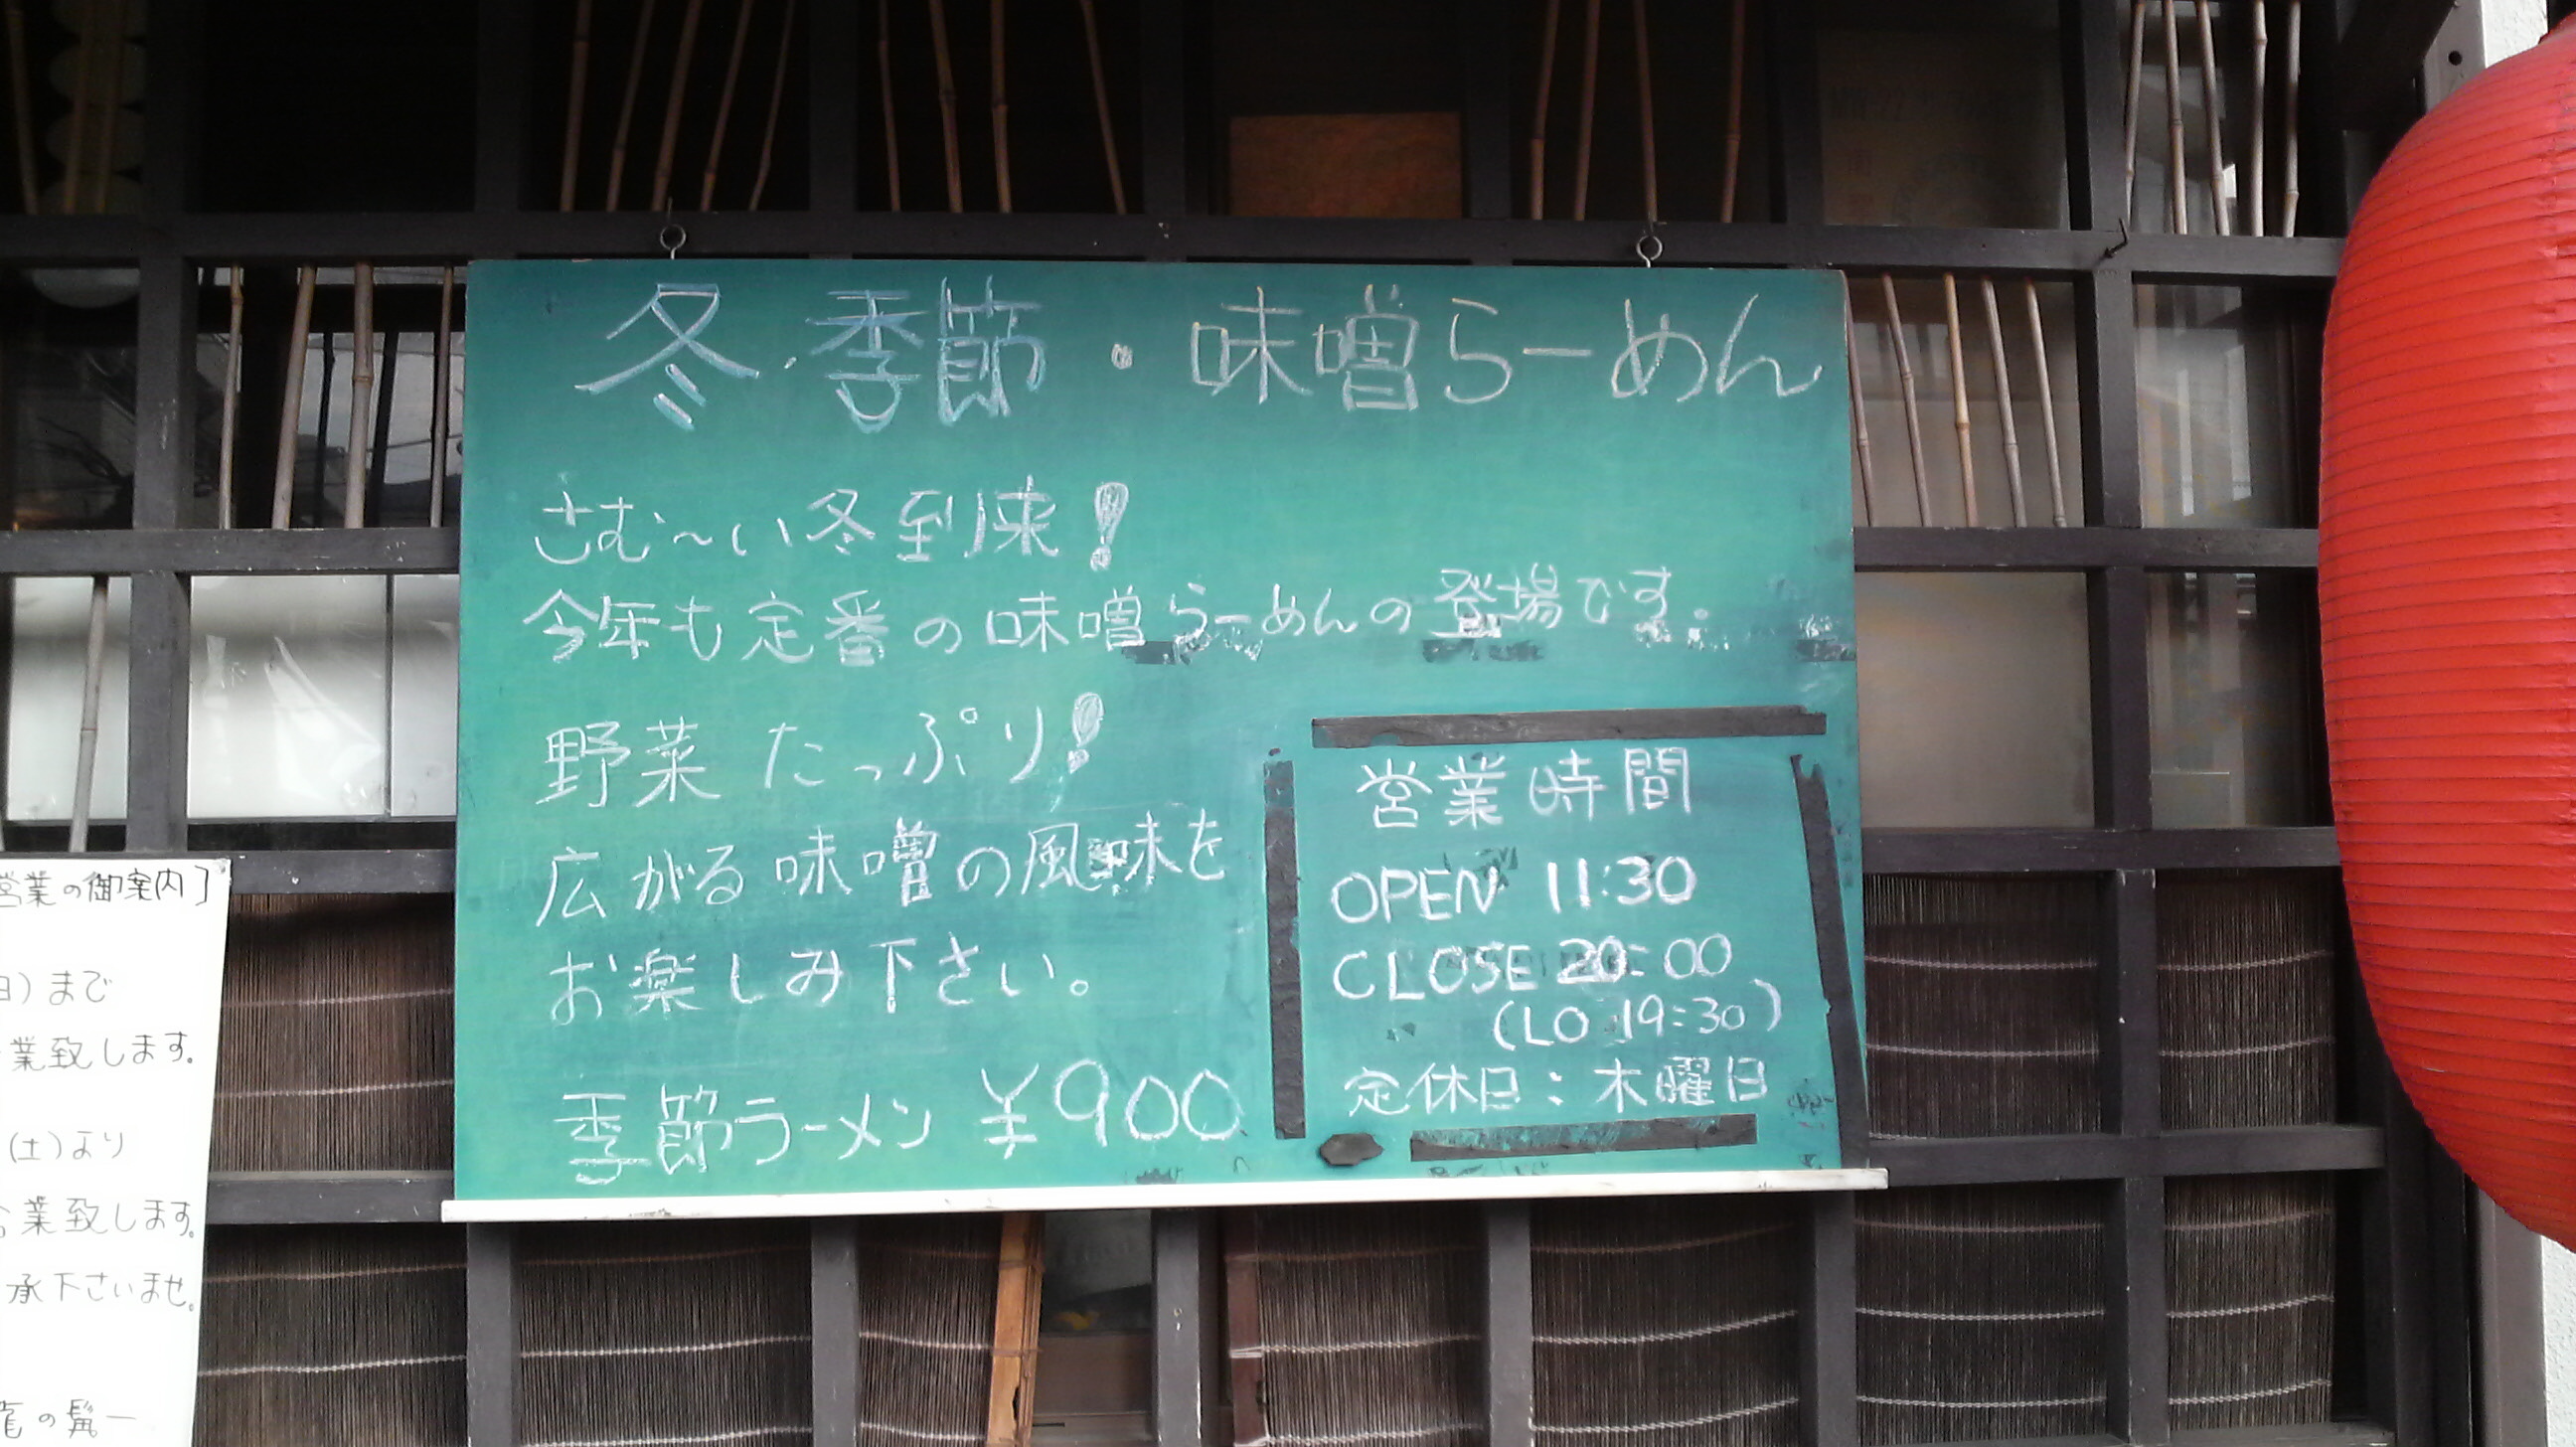 冬・季節・味噌らーめん
さむ〜い冬到来!
今年も定番の味噌らーめんの登場です。
野菜たっぷり!
広がる味噌の風味を
お楽しみ下さい。
季節ラーメン ¥900
営業時間
OPEN 11:30
CLOSE 20:00
(LO 19:30)
定休日:木曜日
営業の御案内]
日)まで
業致します。
(土)より
業致します。
承下さいませ。
龍の髯